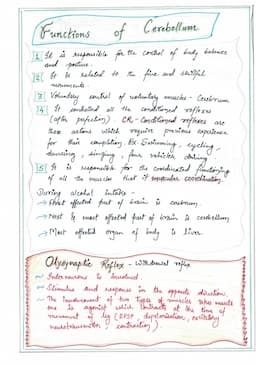 Functions of Cerebellum
1 It is responsible for the control of body balance
and posture.
2 It is related to the fine and skillful
movements.
3 Voluntary control of voluntary muscles - Cerebrum
4 It controlled all the conditioned reflexes
(after perfection). CR - Conditioned reflexes are
those actions which require previous experience
for their completion. Ex - Swimming, cycling,
dancing, singing, four vehicles driving
5 It is responsible for the coordinated functioning
of all the muscles that if
During alcohol intake -
→ First affected part of brain is cerebrum.
→ Next & most affected part of brain is cerebellum
→ Most affected organ of body is liver.
Reflex - Withdrawal reflex
Interneurons is involved
Stimulus and response in the opposite direction.
The involvement of two types of muscles takes muscle
one is agonist which contracts at the time of
movement of leg (EPSP depolarisation, excitatory
neurotransmitter contraction).